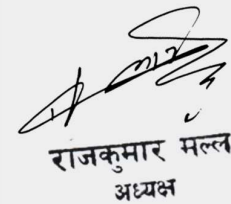 राजकुमार मल्ल
अध्यक्ष